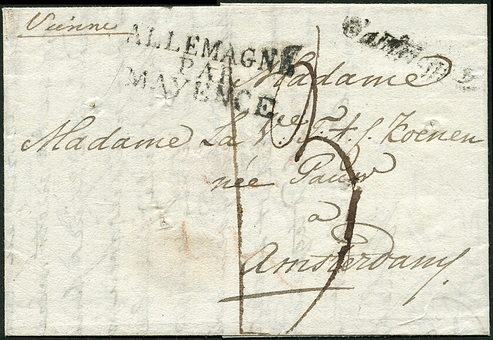 Vienne
ALLEMAGNE
PAR
MAYENCE
Madame
Madame La
née Pauw
à
Amsterdam